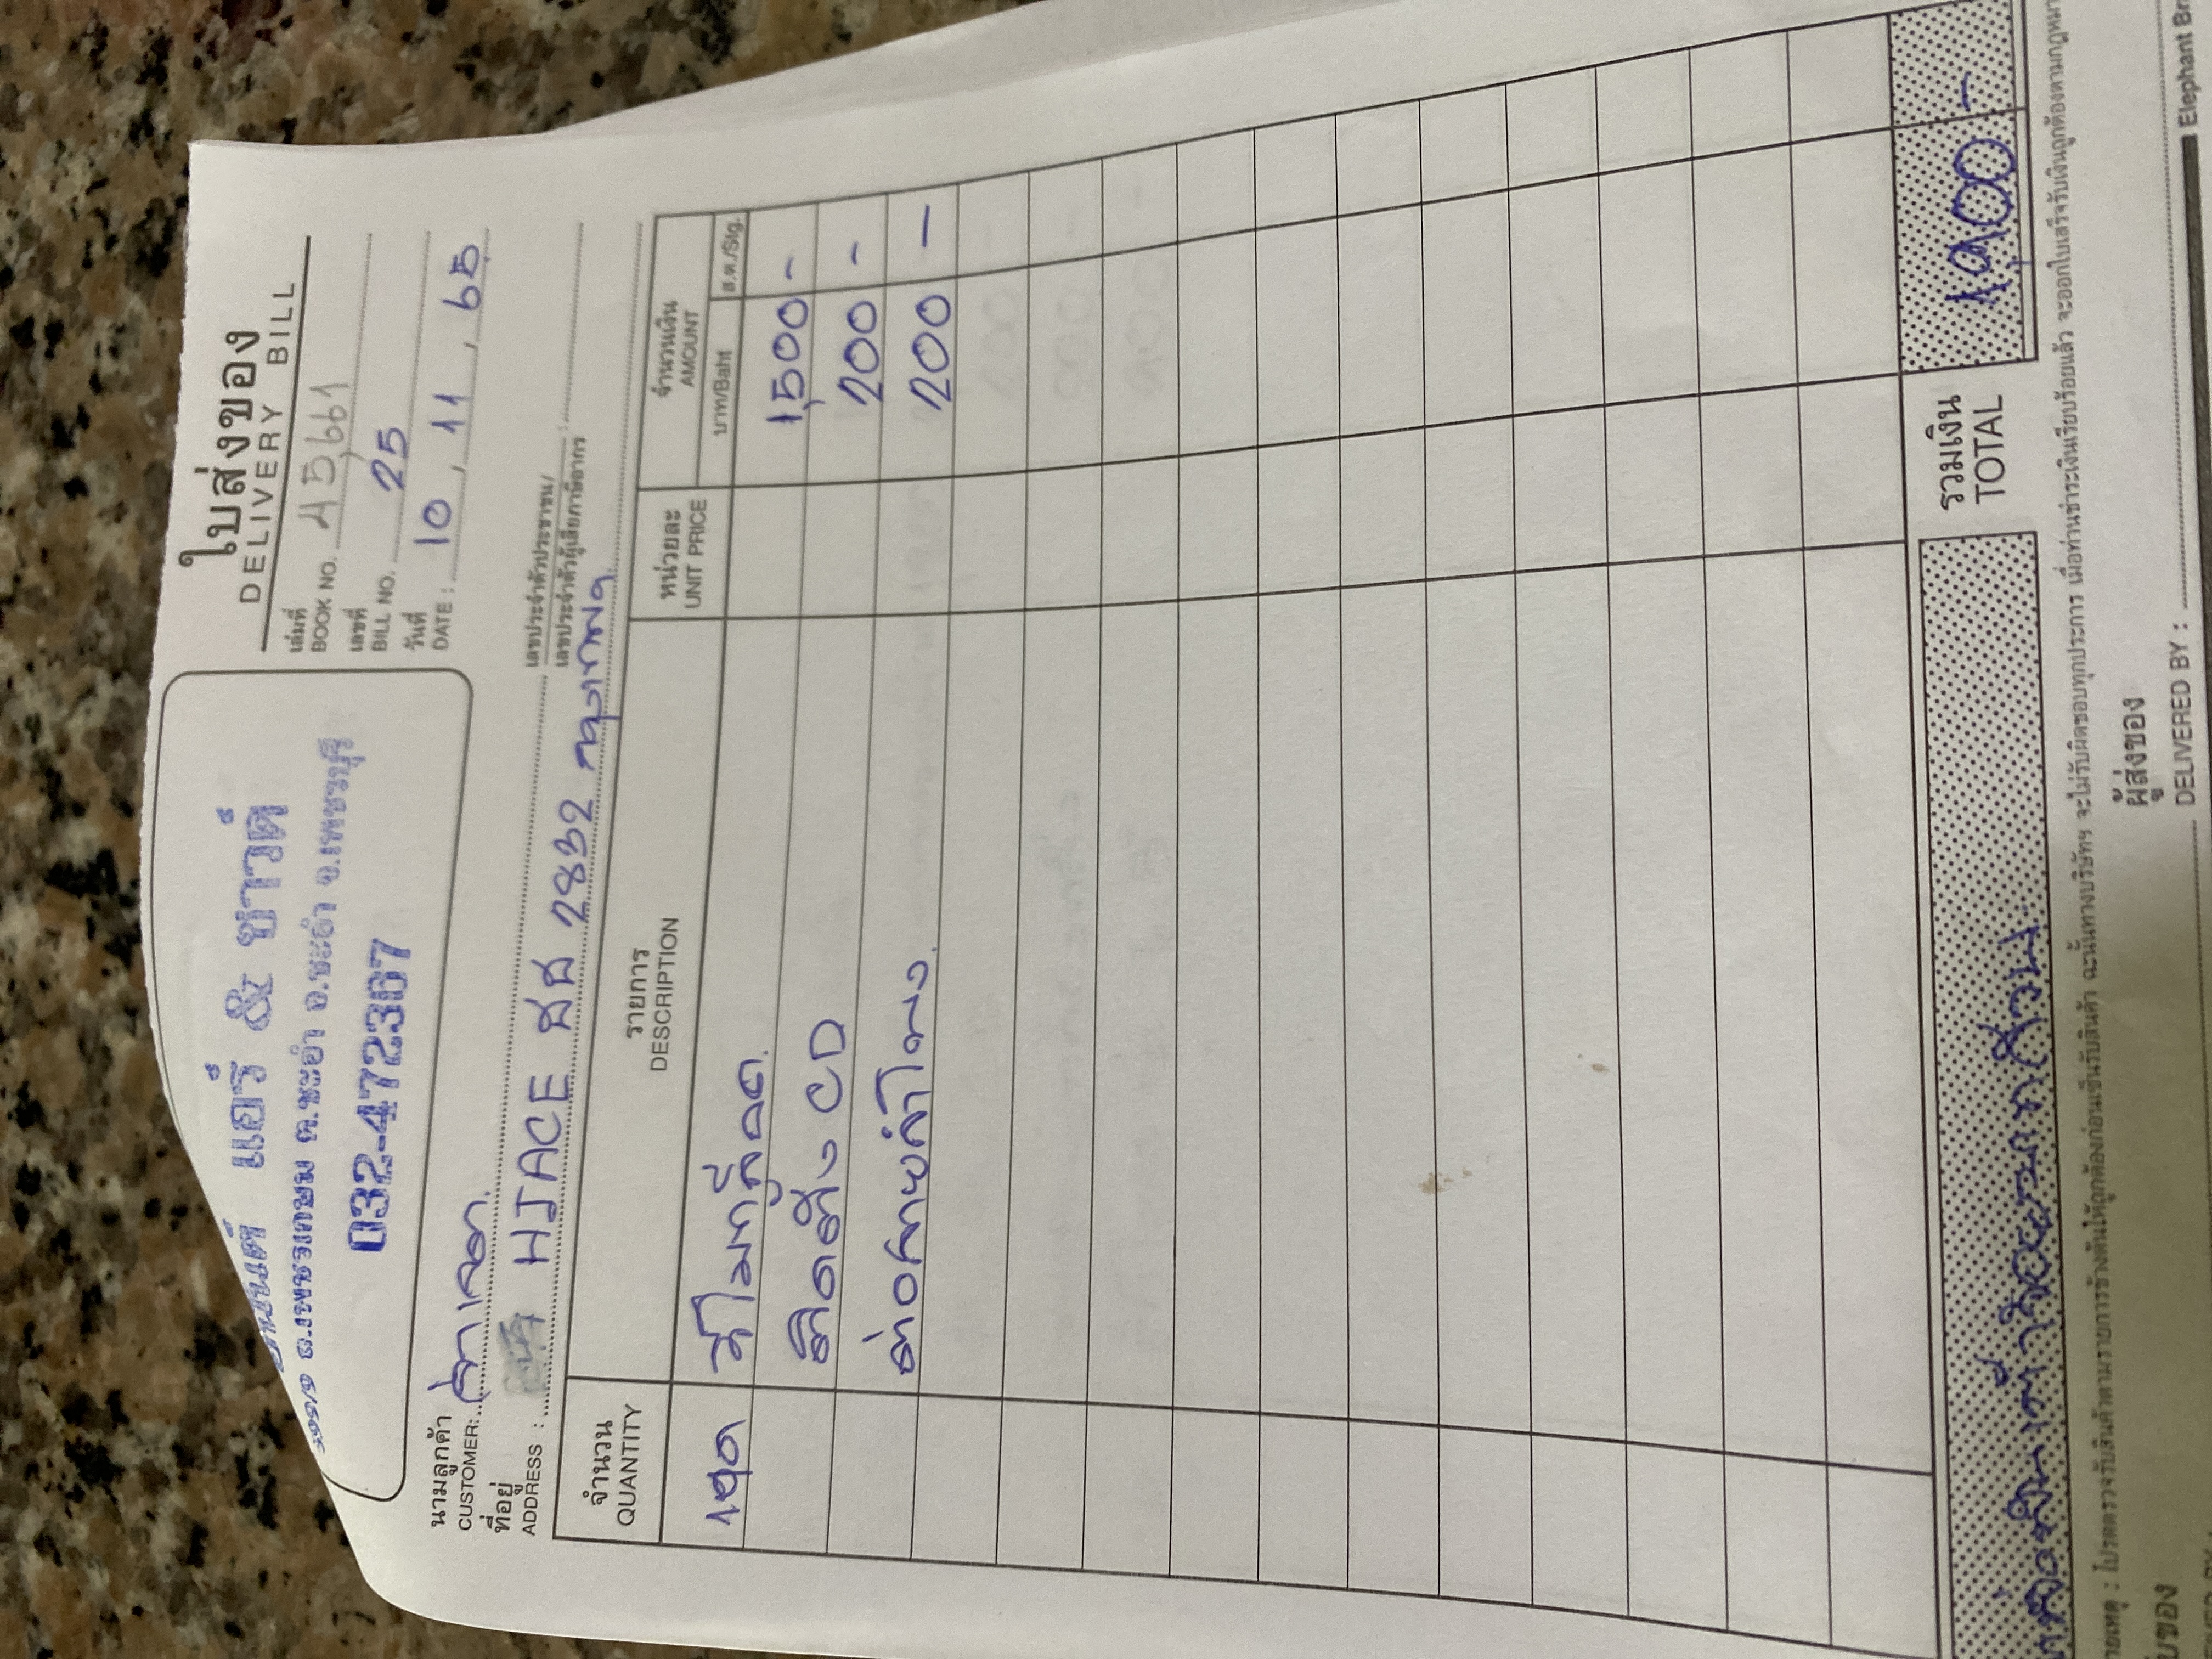 แอร์ & ซาวด์
ถ.เพชรเกษม ต.ชะอำ อ.ชะอำ จ.เพชรบุรี
032-472387
ใบส่งของ
DELIVERY BILL
เล่มที่
BOOK NO. 45,661
เลขที่
BILL NO. 25
วันที่
DATE : 10, 11, 65
นามลูกค้า
CUSTOMER:
ที่อยู่
ADDRESS : HIACE ฮฮ 2832 กรุงเทพฯ
เลขประจำตัวประชาชน/
เลขประจำตัวผู้เสียภาษีอากร :
จำนวน รายการ หน่วยละ จำนวนเงิน
QUANTITY DESCRIPTION UNIT PRICE AMOUNT
บาท/Baht ส.ต./Stg.
1ชุด รีโมทล็อค. 1,500 -
ติดตั้ง CD 200 -
ต่อสายลำโพง. 200 -
รวมเงิน
TOTAL 1,900 -
หนึ่งพันเก้าร้อยบาทถ้วน.
หมายเหตุ : โปรดตรวจรับสินค้าตามรายการข้างต้นให้ถูกต้องก่อนเซ็นรับสินค้า ฉะนั้นทางบริษัทฯ จะไม่รับผิดชอบทุกประการ เมื่อท่านชำระเงินเรียบร้อยแล้ว จะออกใบเสร็จรับเงินถูกต้องตามกฎหมาย
ผู้ส่งของ
DELIVERED BY :
Elephant